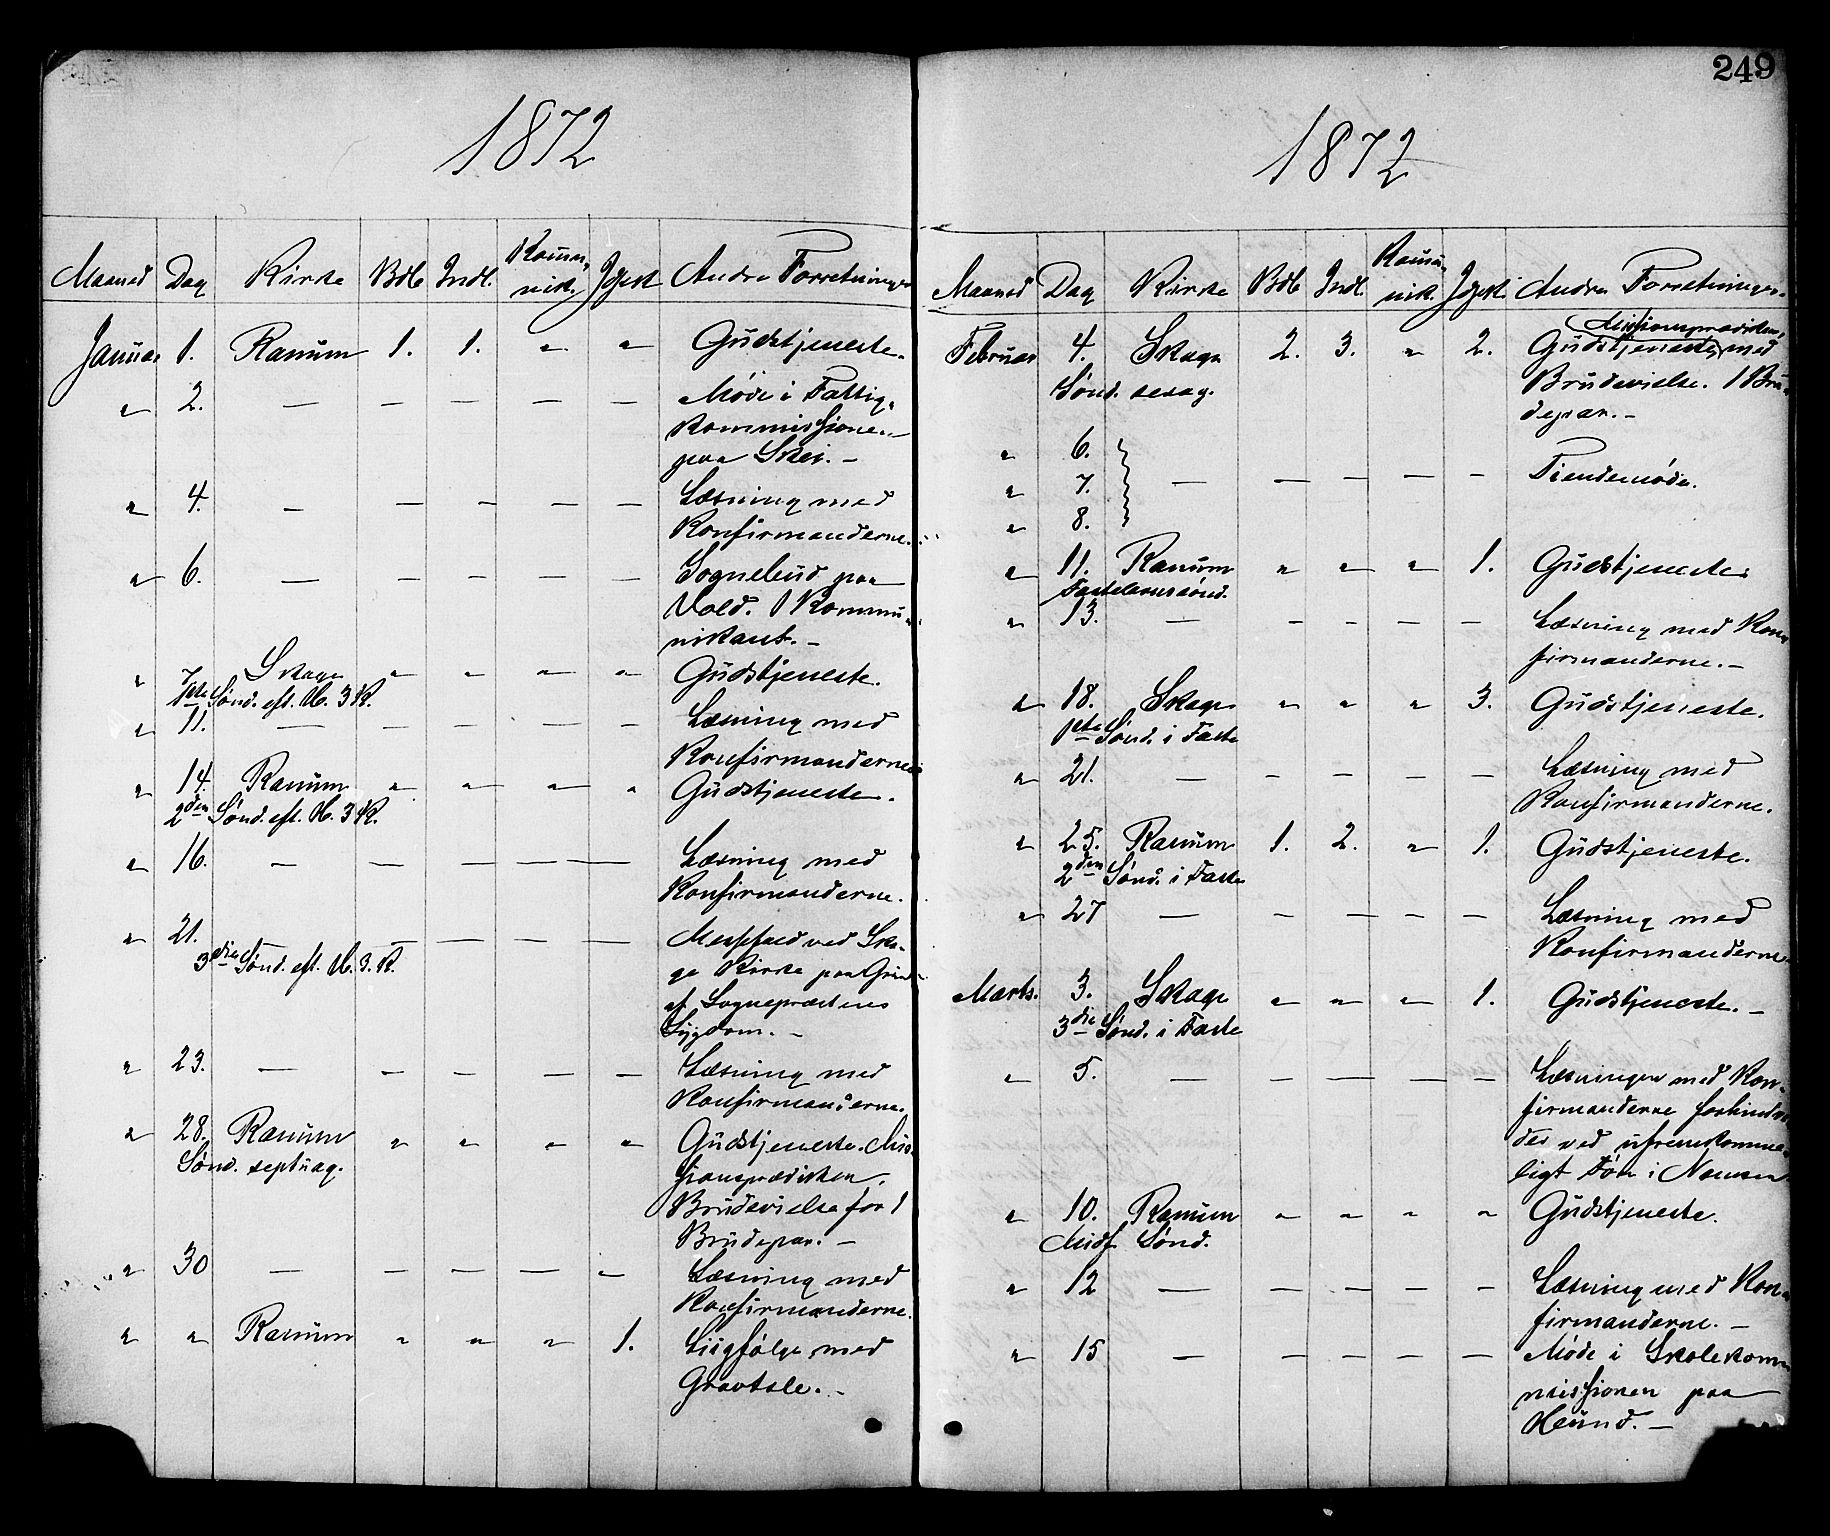 1872
Maaned Dag Kirke Bdb Indl. Komm, nik. Jdgst Andre Forretninger
Januar 1. Ranum 1. 1. " " Gudstjeneste.
" 2. — — — — — Møde i Fattig,
kommissionen
paa Skei. —
" 4. — — — — — Læsning med
Konfirmanderne.
" 6. — — — — — Sognebud paa
Vold. 1 Kommu-
nikant. —
" 7. Skage " " " " Gudstjeneste.
1ste Sønd. eft. H. 3 K.
" 11. — — — — — Læsning med
Konfirmanderne
" 14. Ranum " " " " Gudstjeneste.
2den Sønd. eft. H. 3 K.
" 16. — — — — — Læsning med
Konfirmanderne.
" 21. — — — — — Messefald ved Ska-
3die Sønd. eft. H. 3. K.
ge Kirke paa Grund
af Sognepræstens
Sygdom. —
" 23. — — — — — Læsning med
Konfirmanderne.
" 28. Ranum " " " " Gudstjeneste. Mis-
Sønd. septuag.
sionsprædiken.
Brudevielse for 1
Brudepar. —
" 30 — — — — — Læsning med
Konfirmanderne.
" " Ranum " " " 1. Liigfølge med
Gravtale. —
249
1872
Maaned Dag Kirke Bdb Indl. Komm, nik. Jdgst. Andre Forretninger.
Februar 4. Skage 2. 3. " 2. Gudstjeneste, med
Missionsprædiken,
Sønd. sexag.
Brudevielse. 1 Bru-
depar. —
" 6.
" 7. — — — — — Tiendemøde.
" 8.
" 11. Ranum " " " 1. Gudstjeneste
Fastelavnssønd.
" 13. — — — — — Læsning med Kon-
firmanderne. —
" 18. Skage " " " 3. Gudstjeneste.
1ste Sønd. i Faste
" 21. — — — — — Læsning med
Konfirmanderne.
" 25. Ranum 1. 2. " 1. Gudstjeneste.
2den Sønd. i Faste
" 27 — — — — — Læsning med
Konfirmanderne.
Marts. 3. Skage " " " 1. Gudstjeneste. —
3die Sønd. i Faste
" 5. — — — — — Læsningen med Kon-
firmanderne forhindre-
des ved ufremkomme-
ligt Føre i Namsen
" 10. Ranum " " " " Gudstjeneste.
Midf. Sønd.
" 12 — — — — — Læsning med Kon-
firmanderne. —
" 15 — — — — — Møde i Skolekom-
missionen paa
Hund. —